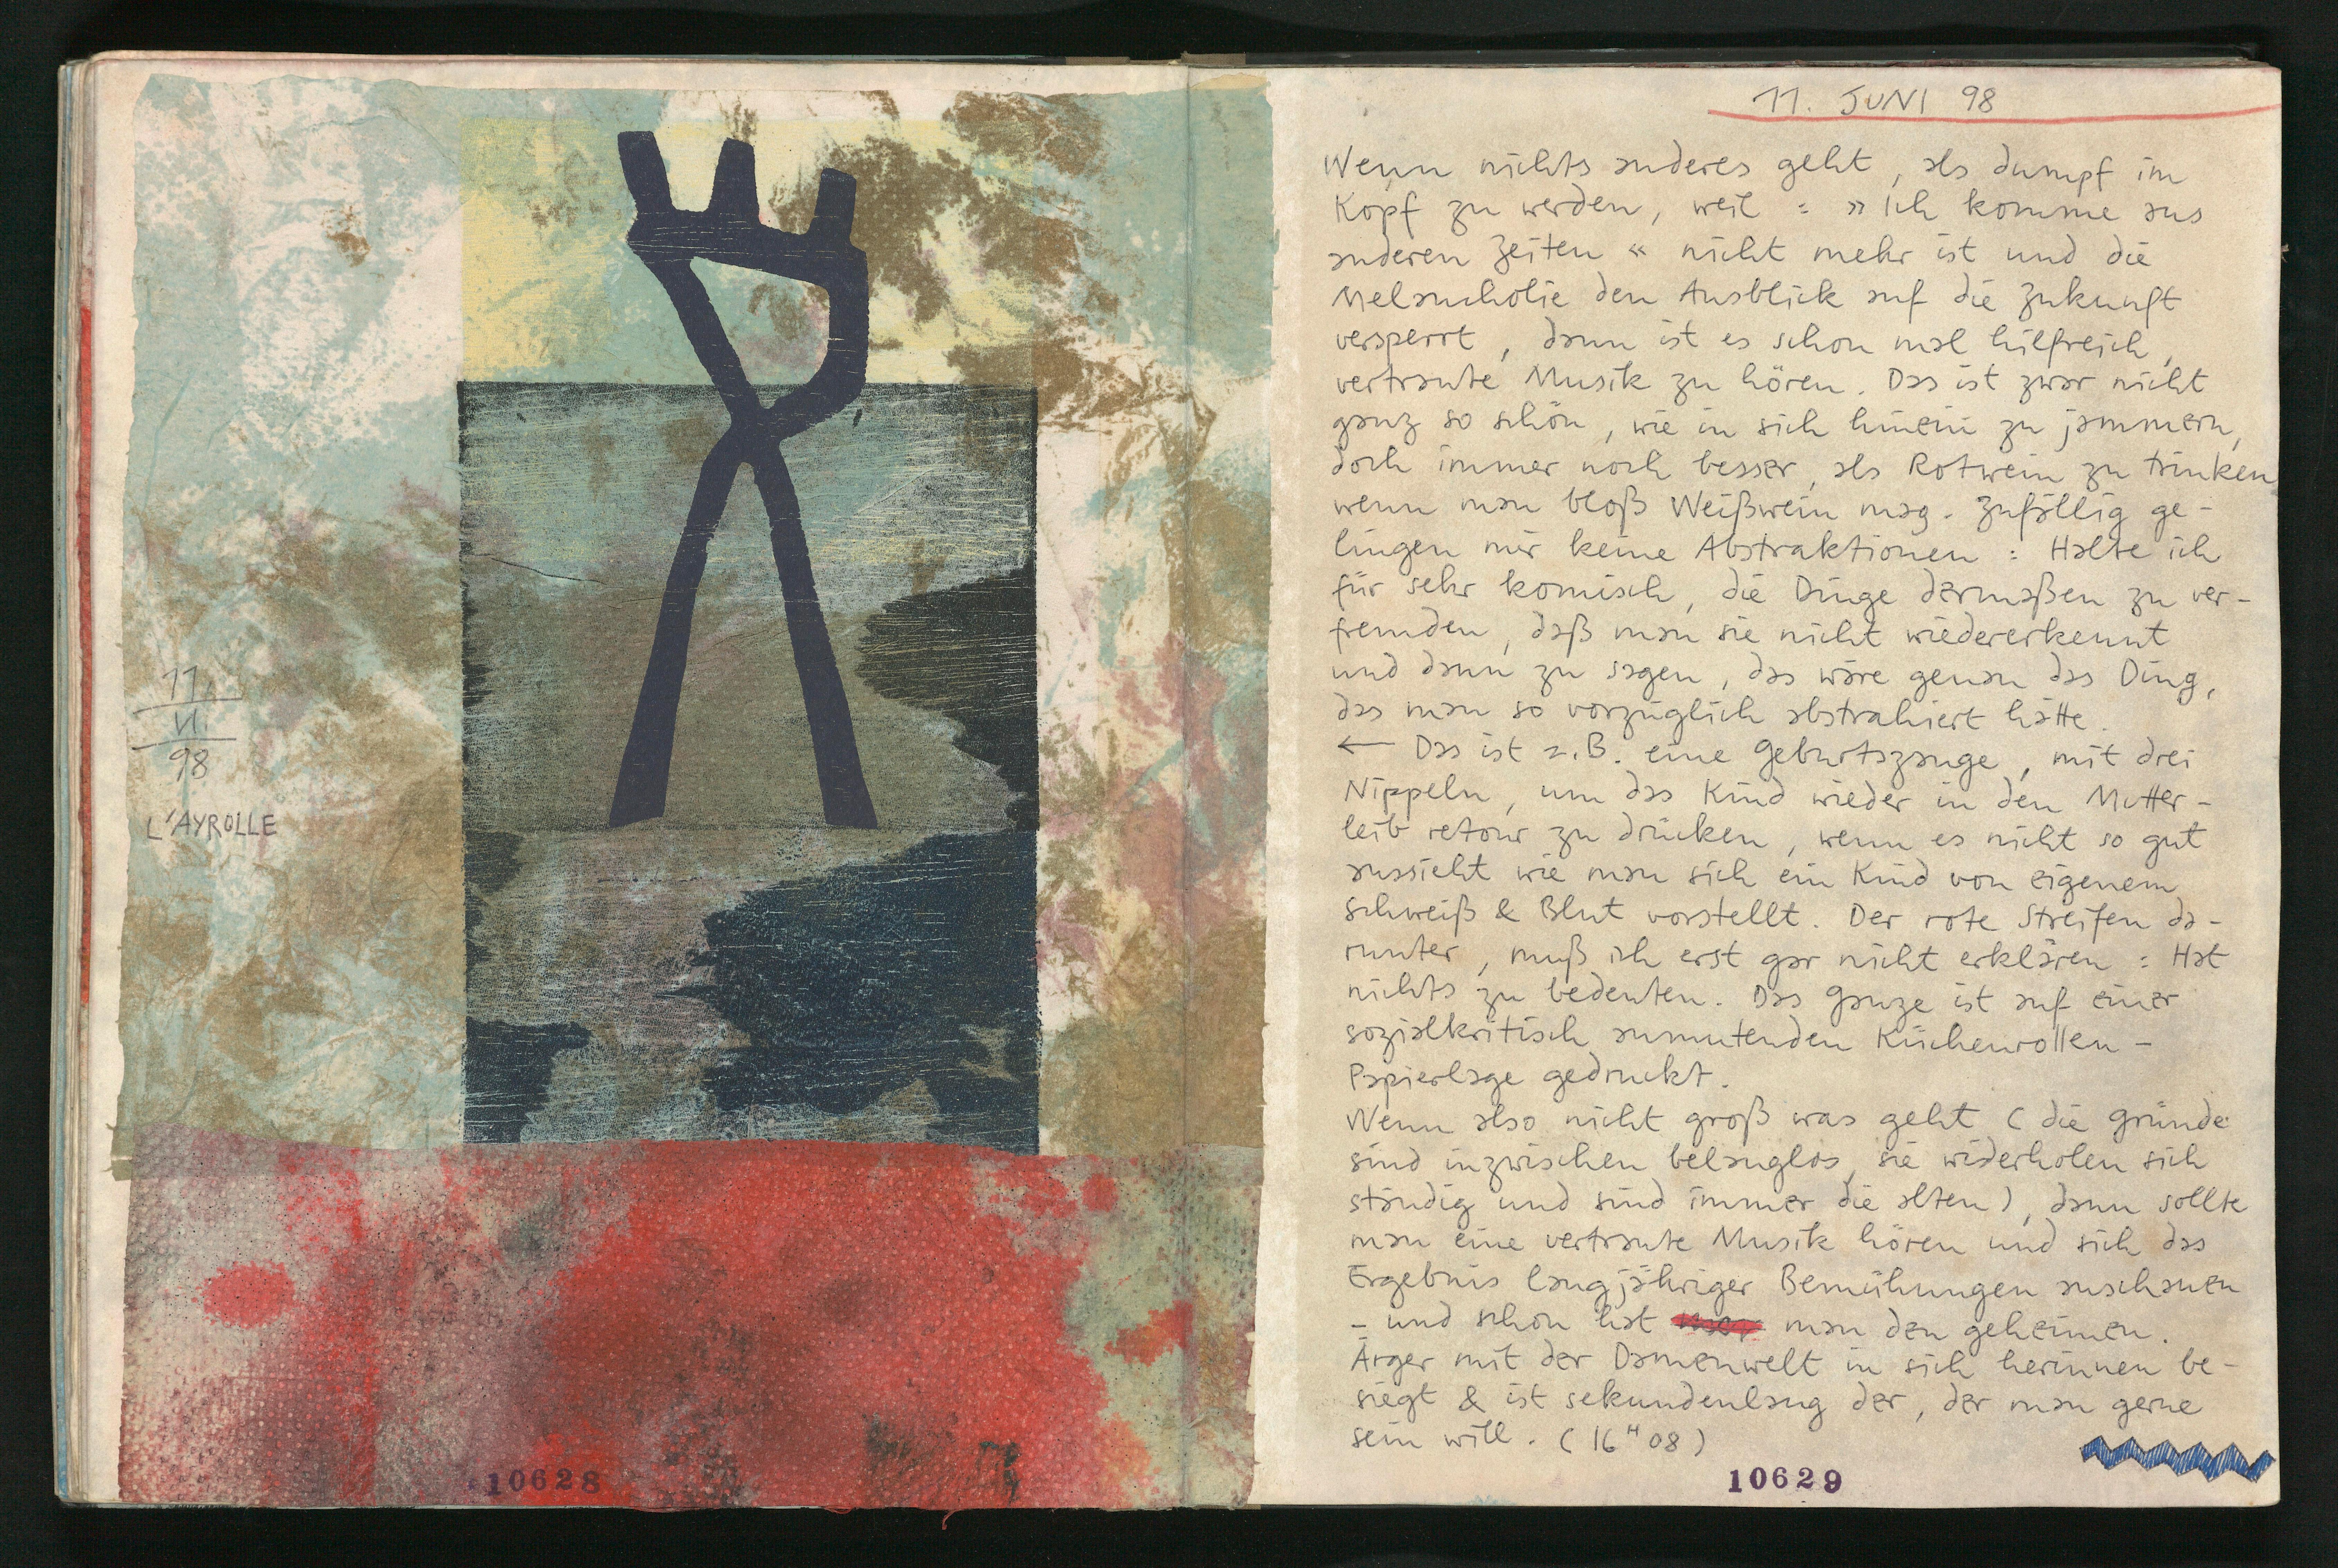 11.
VI.
98
L'AYROLLE
10628
11. JUNI 98
Wenn nichts anderes geht, als dumpf im
Kopf zu werden, weil : »Ich komme aus
anderen Zeiten« nicht mehr ist und die
Melancholie den Ausblick auf die Zukunft
versperrt, dann ist es schon mal hilfreich,
vertraute Musik zu hören. Das ist zwar nicht
ganz so schön, wie in sich hinein zu jammern,
doch immer noch besser, als Rotwein zu trinken
wenn man bloß Weißwein mag. Zufällig ge-
lingen mir keine Abstraktionen : Halte ich
für sehr komisch, die Dinge dermaßen zu ver-
fremden, daß man sie nicht wiedererkennt
und dann zu sagen, das wäre genau das Ding,
das man so vorzüglich abstrahiert hätte.
← Das ist z.B. eine Geburtszange, mit drei
Nippeln, um das Kind wieder in den Mutter-
leib retour zu drücken, wenn es nicht so gut
aussieht wie man sich ein Kind von eigenem
Schweiß & Blut vorstellt. Der rote Streifen da-
runter, muß ich erst gar nicht erklären : Hat
nichts zu bedeuten. Das Ganze ist auf einer
sozialkritisch anmutenden Küchenrollen-
Papierlage gedruckt.
Wenn also nicht groß was geht (die Gründe
sind inzwischen belanglos, sie widerholen sich
ständig und sind immer die alten), dann sollte
man eine vertraute Musik hören und sich das
Ergebnis langjähriger Bemühungen anschauen
- und schon hat man den geheimen.
Ärger mit der Damenwelt in sich herinnen be-
siegt & ist sekundenlang der, der man gerne
sein will. (16 H 08)
10629